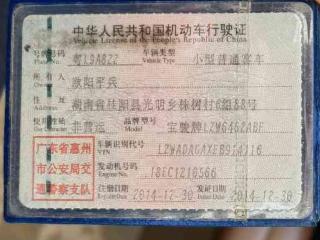 中华人民共和国机动车行驶证
Vehicle License of the People's Republic of China
号牌号码 粤L9A822 车辆类型 小型普通客车
Plate No. Vehicle Type
所有人 欧阳平兵
Owner
住址 湖南省桂阳县光明乡株树村6组88号
Address
使用性质 非营运 品牌型号 宝骏牌LZW6462ABF
Use Character Model
广东省惠州
市公安局交
通警察支队
车辆识别代号
VIN
发动机号码
Engine No.
注册日期 2014-12-30 发证日期 2014-12-30
Register Date Issue Date